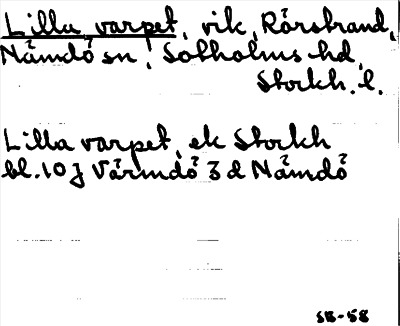 Lilla varpet, vik, Rörstrand,
Nämdö sn, Sotholms hd,
Stockh. l.
Lilla varpet, ek Stockh
bl. 10 J Värmdö 3 d Nämdö
SB-58